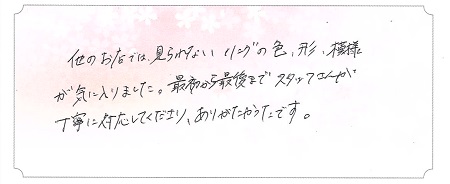 他のお店では、見られない リングの色、形、模様
が気に入りました。最初から最後まで スタッフさんが
丁寧に対応してくださり、ありがたかったです。